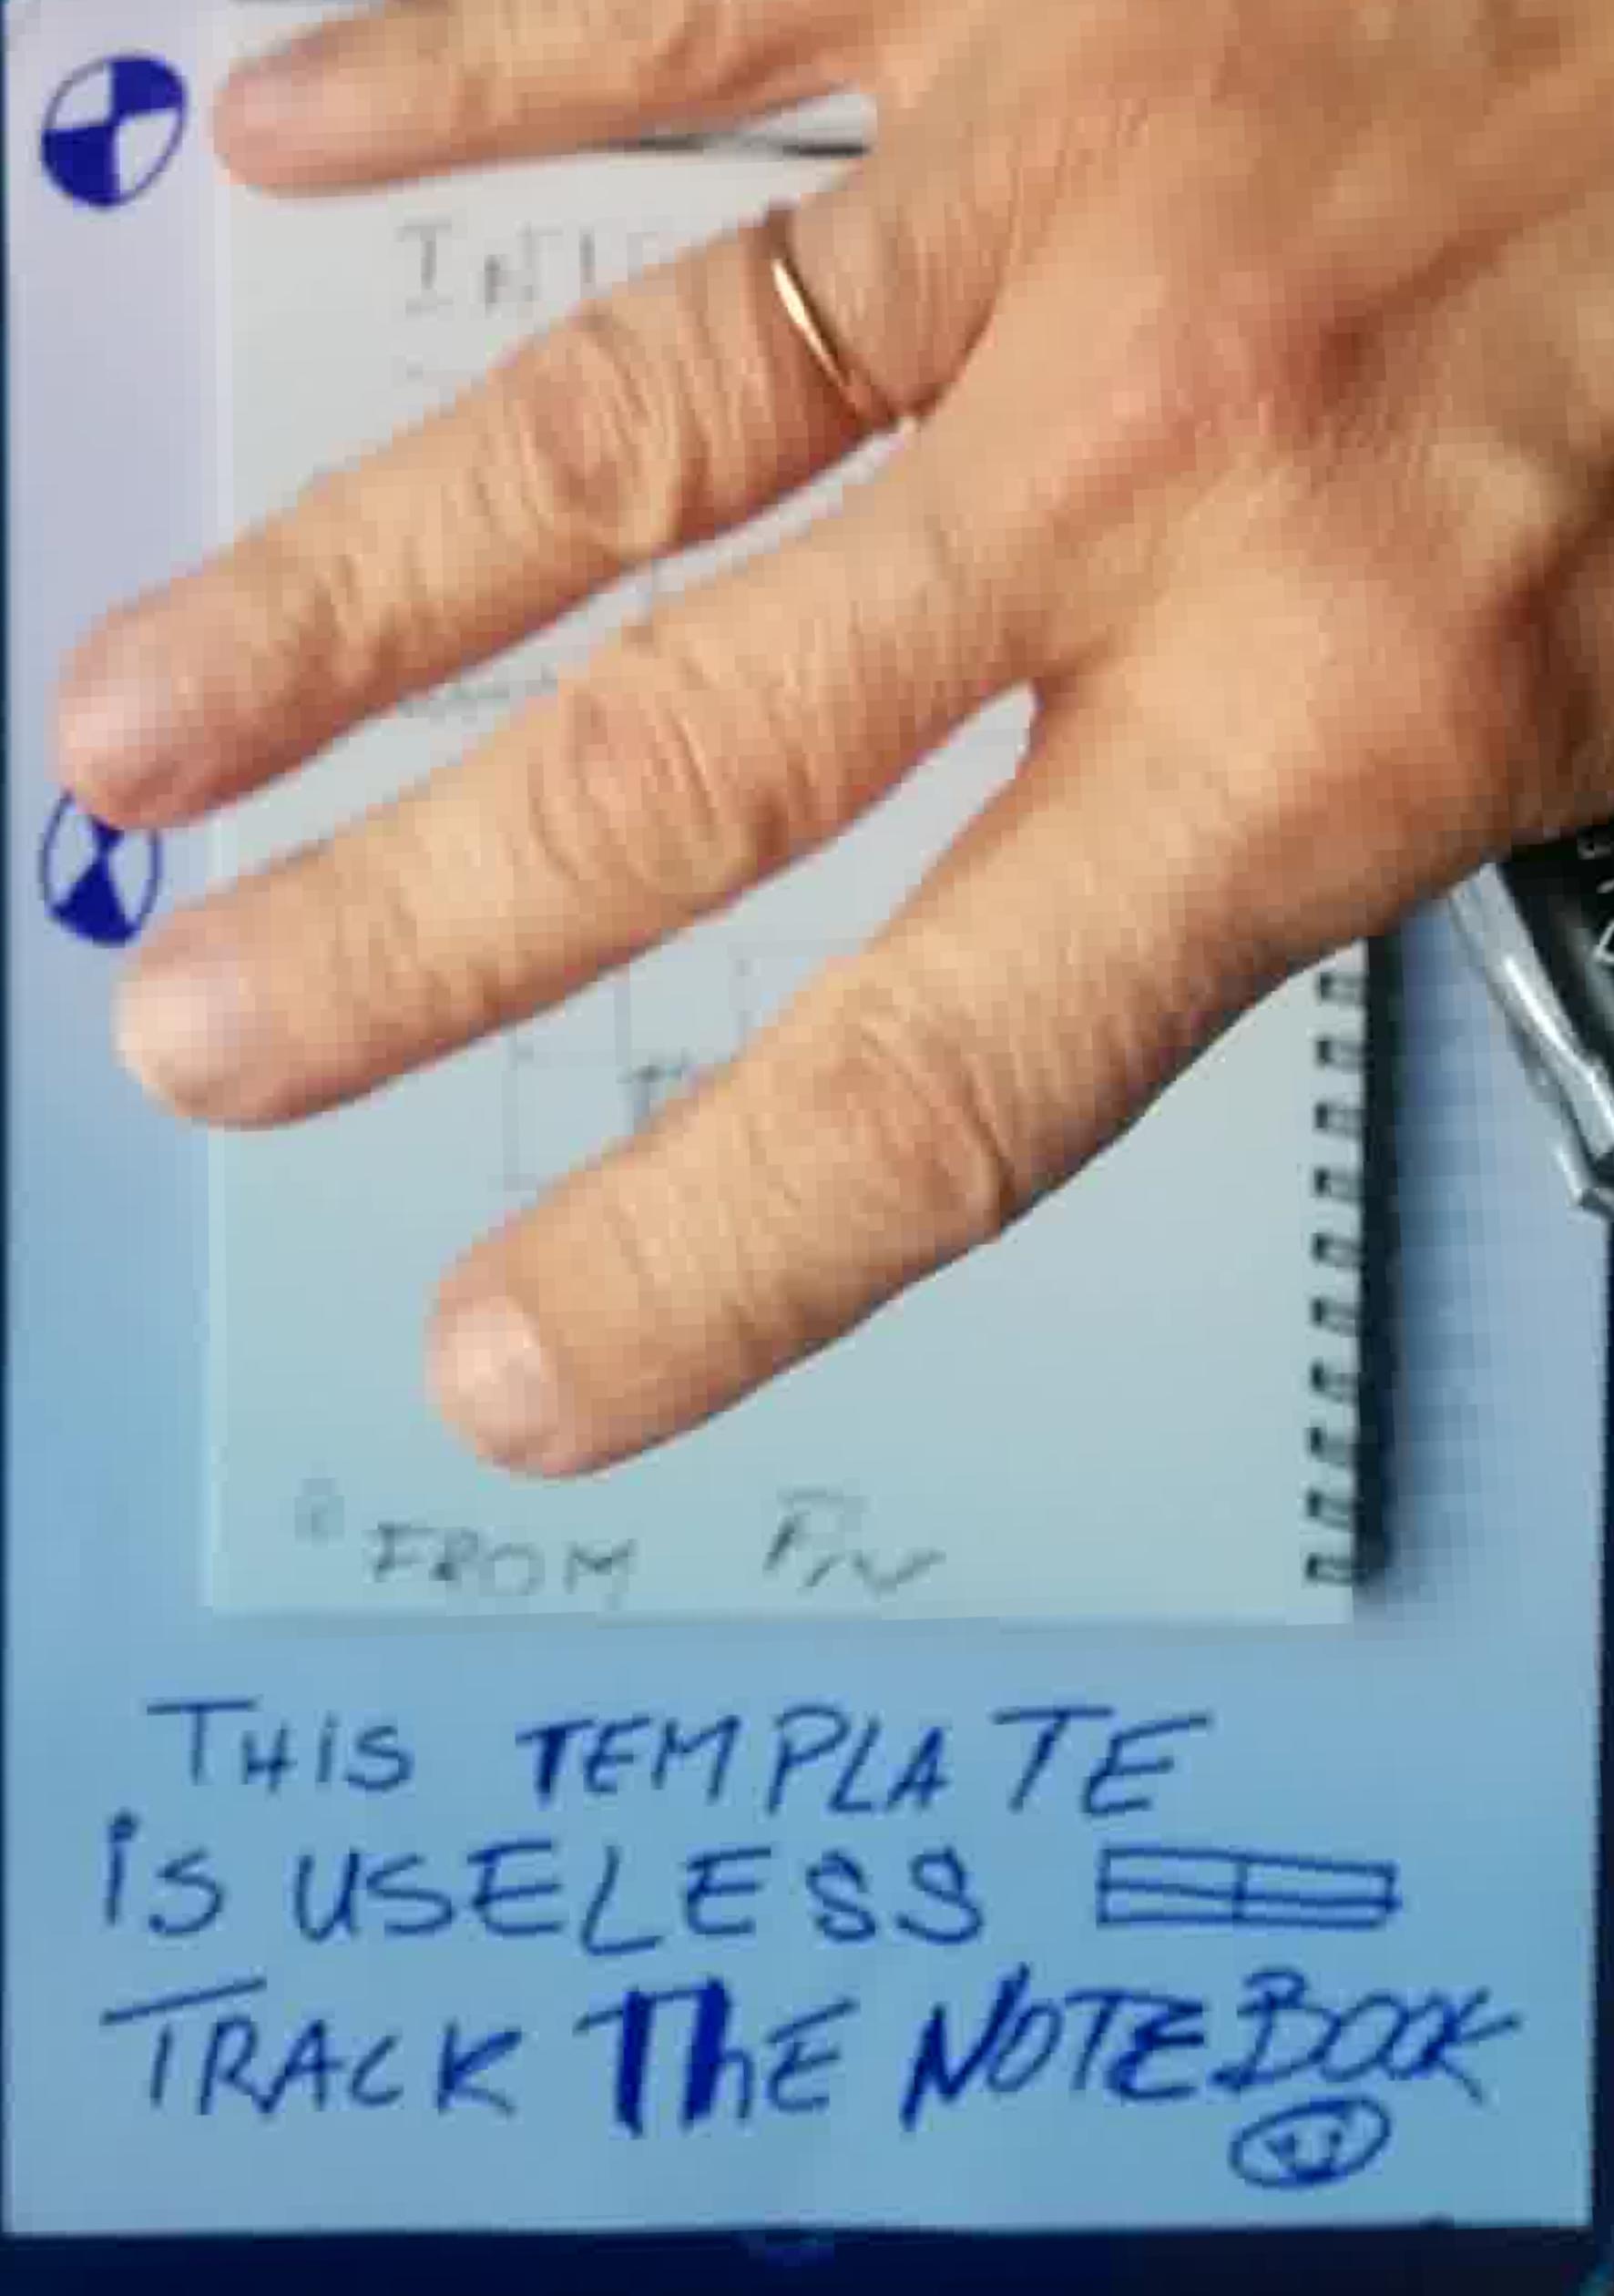 FROM
THIS TEMPLATE
iS USELESS
TRACK ThE NOTEBOOK